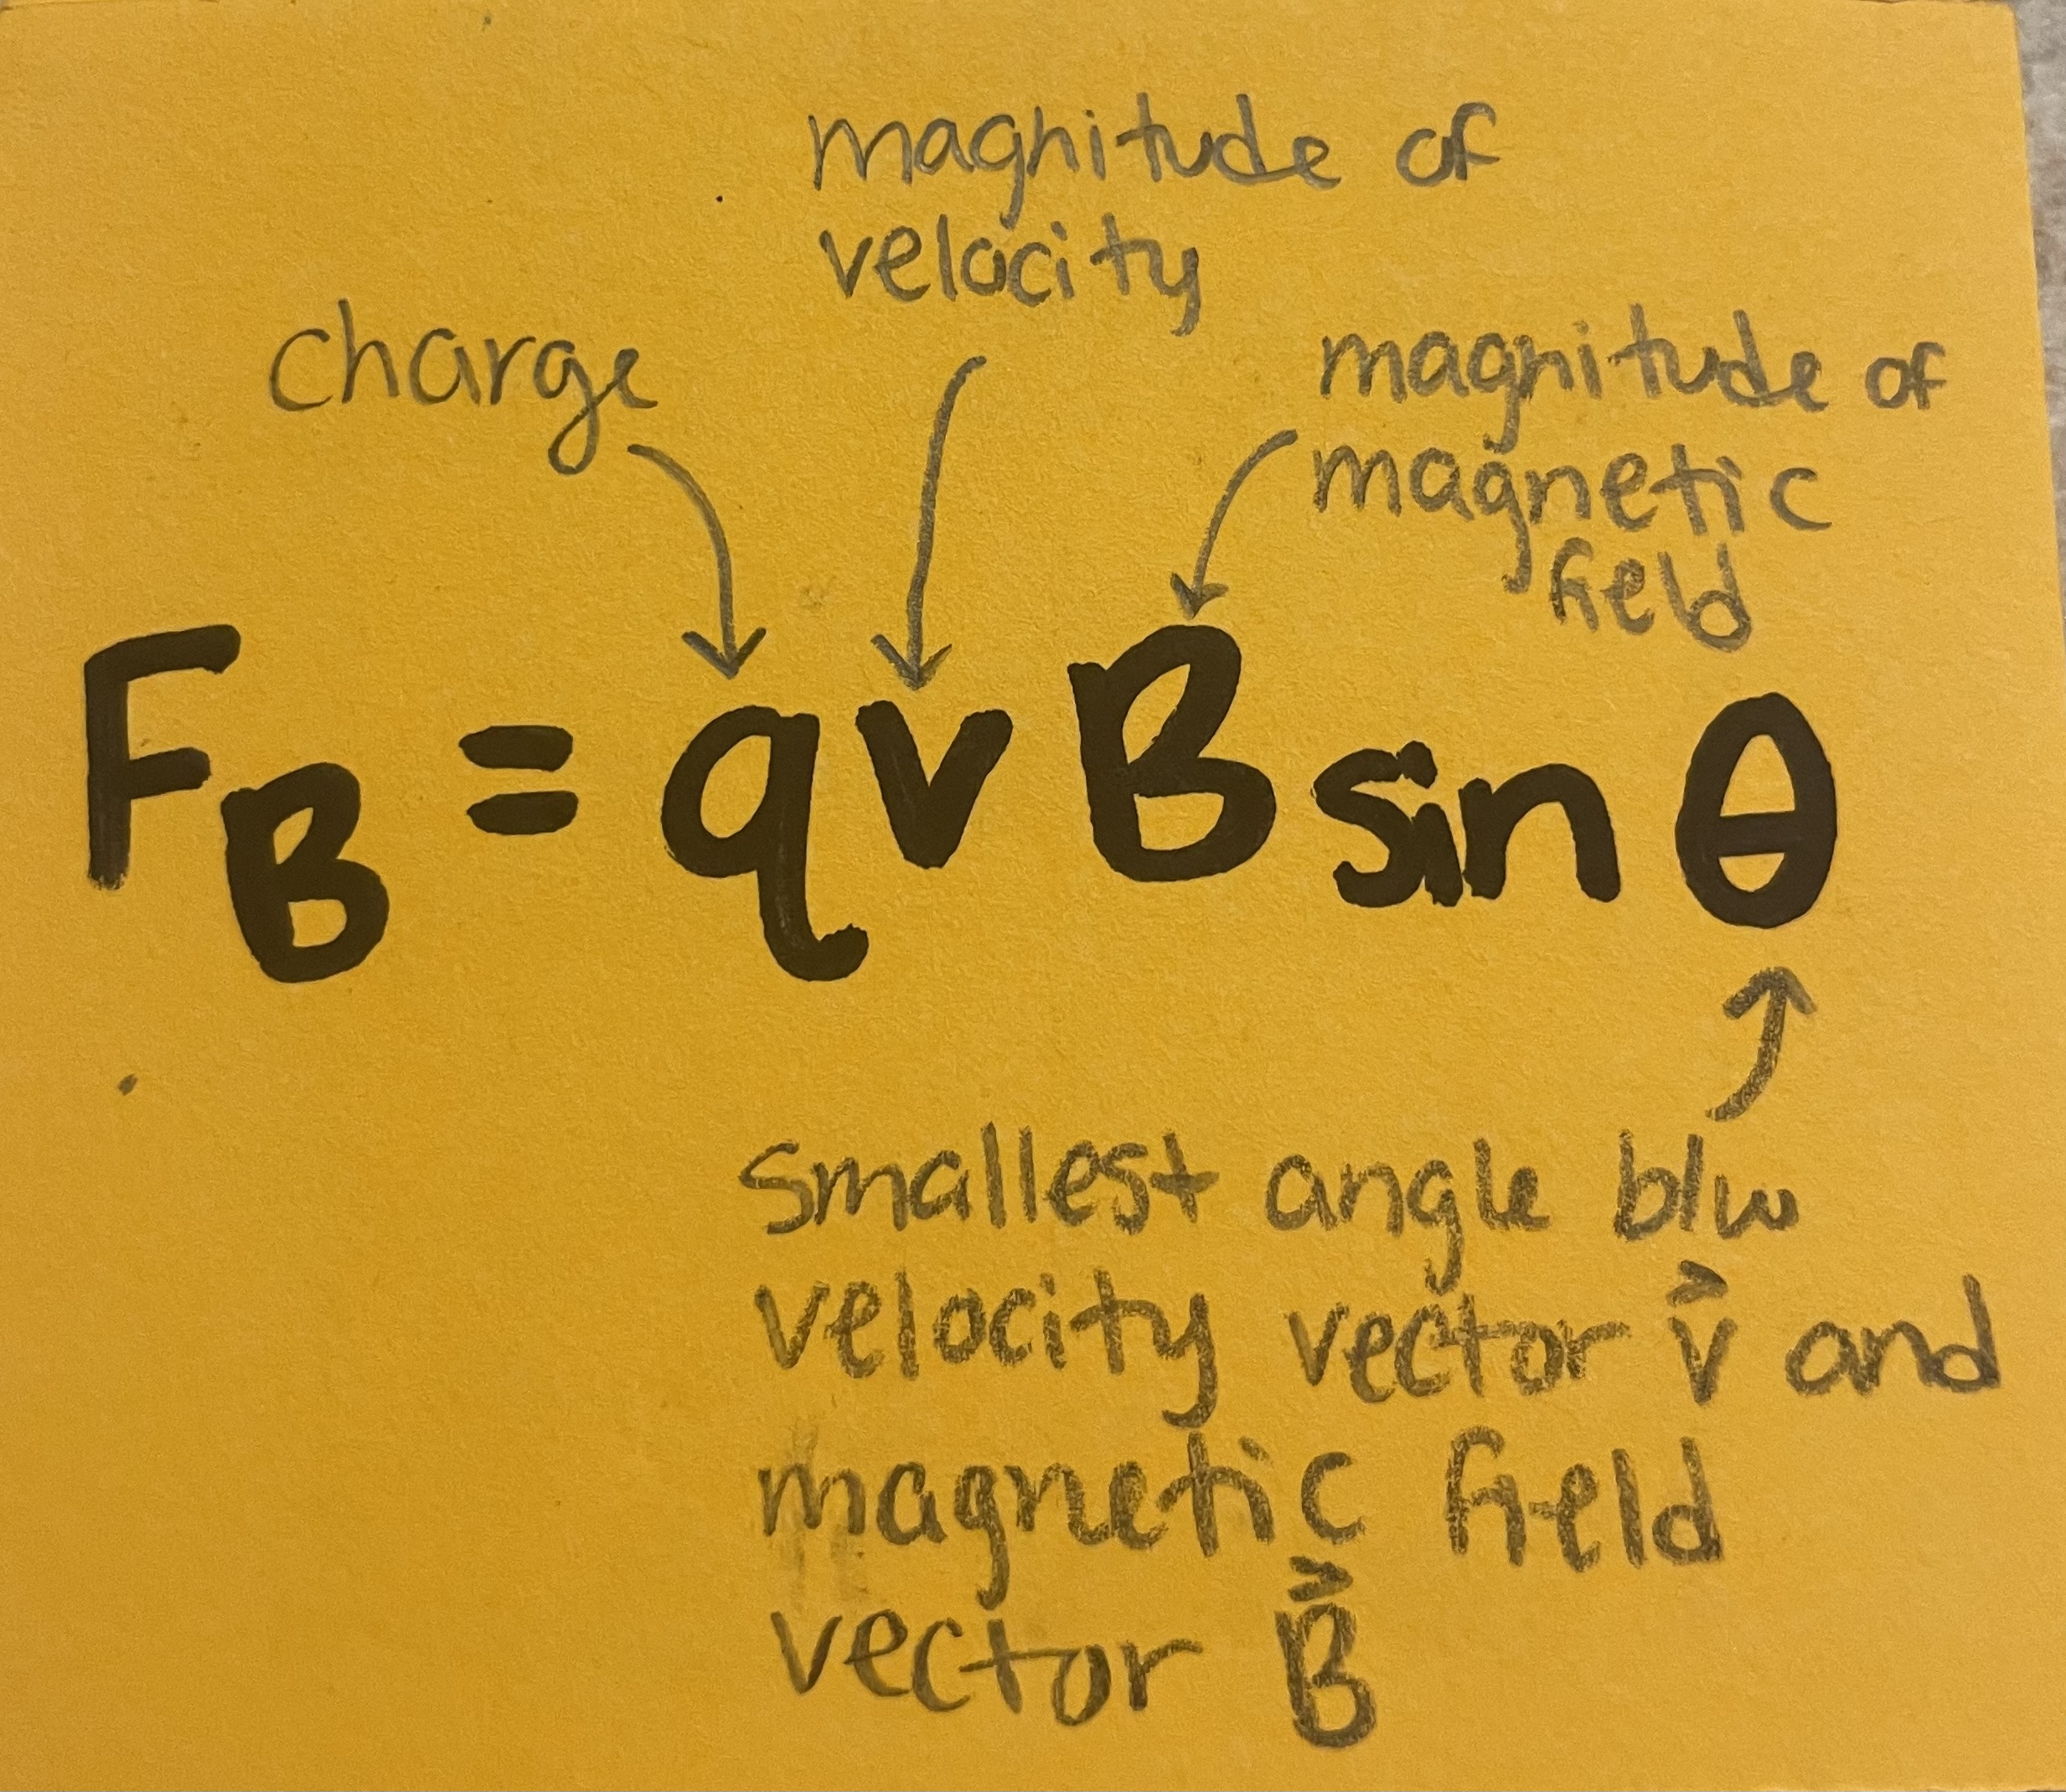 magnitude of
velocity
charge
magnitude of
magnetic
field
F_B = qvB sin θ
smallest angle b/w
velocity vector v⃗ and
magnetic field
vector B⃗